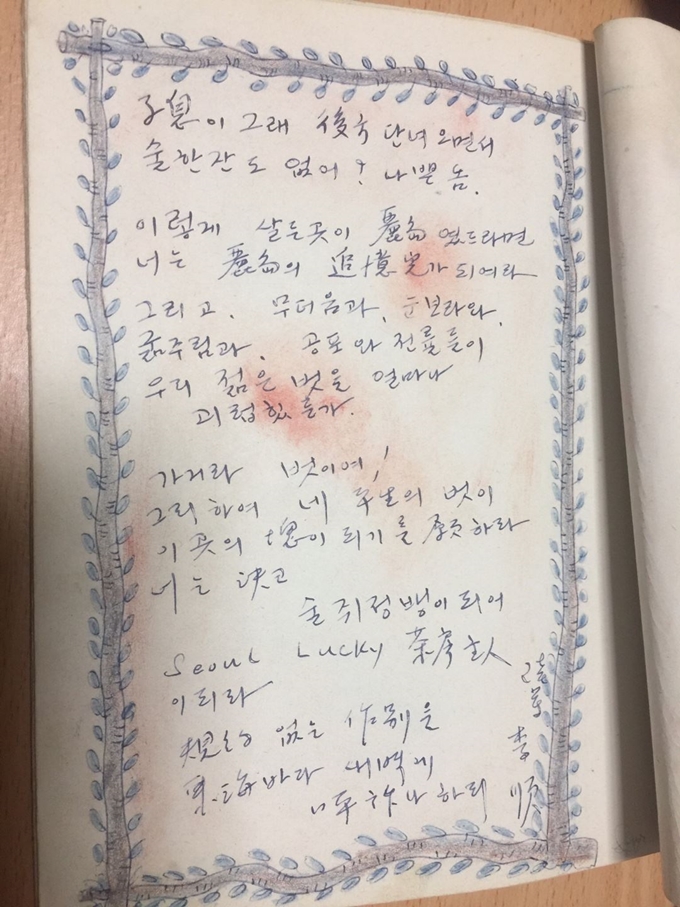 子息이 그래 後方 단녀오면서
술한잔도 없어? 나쁜 놈.
이렇게 살든곳이 麗島였드라면
너는 麗島의 追憶 가되여라
그리고. 무더움과, 눈보라와,
굶주림과. 공포와 전률들이
우리 젊은 벗을 얼마나
괴럽혔든가.
가거라 벗이여!
그리하여 네 平生의 벗이
이곳의 되기를 하라
너는
술주정뱅이되어
Seoul Lucky 茶房主人
이되라
없는 作別을
東海바다 새벽에
하리
李 順